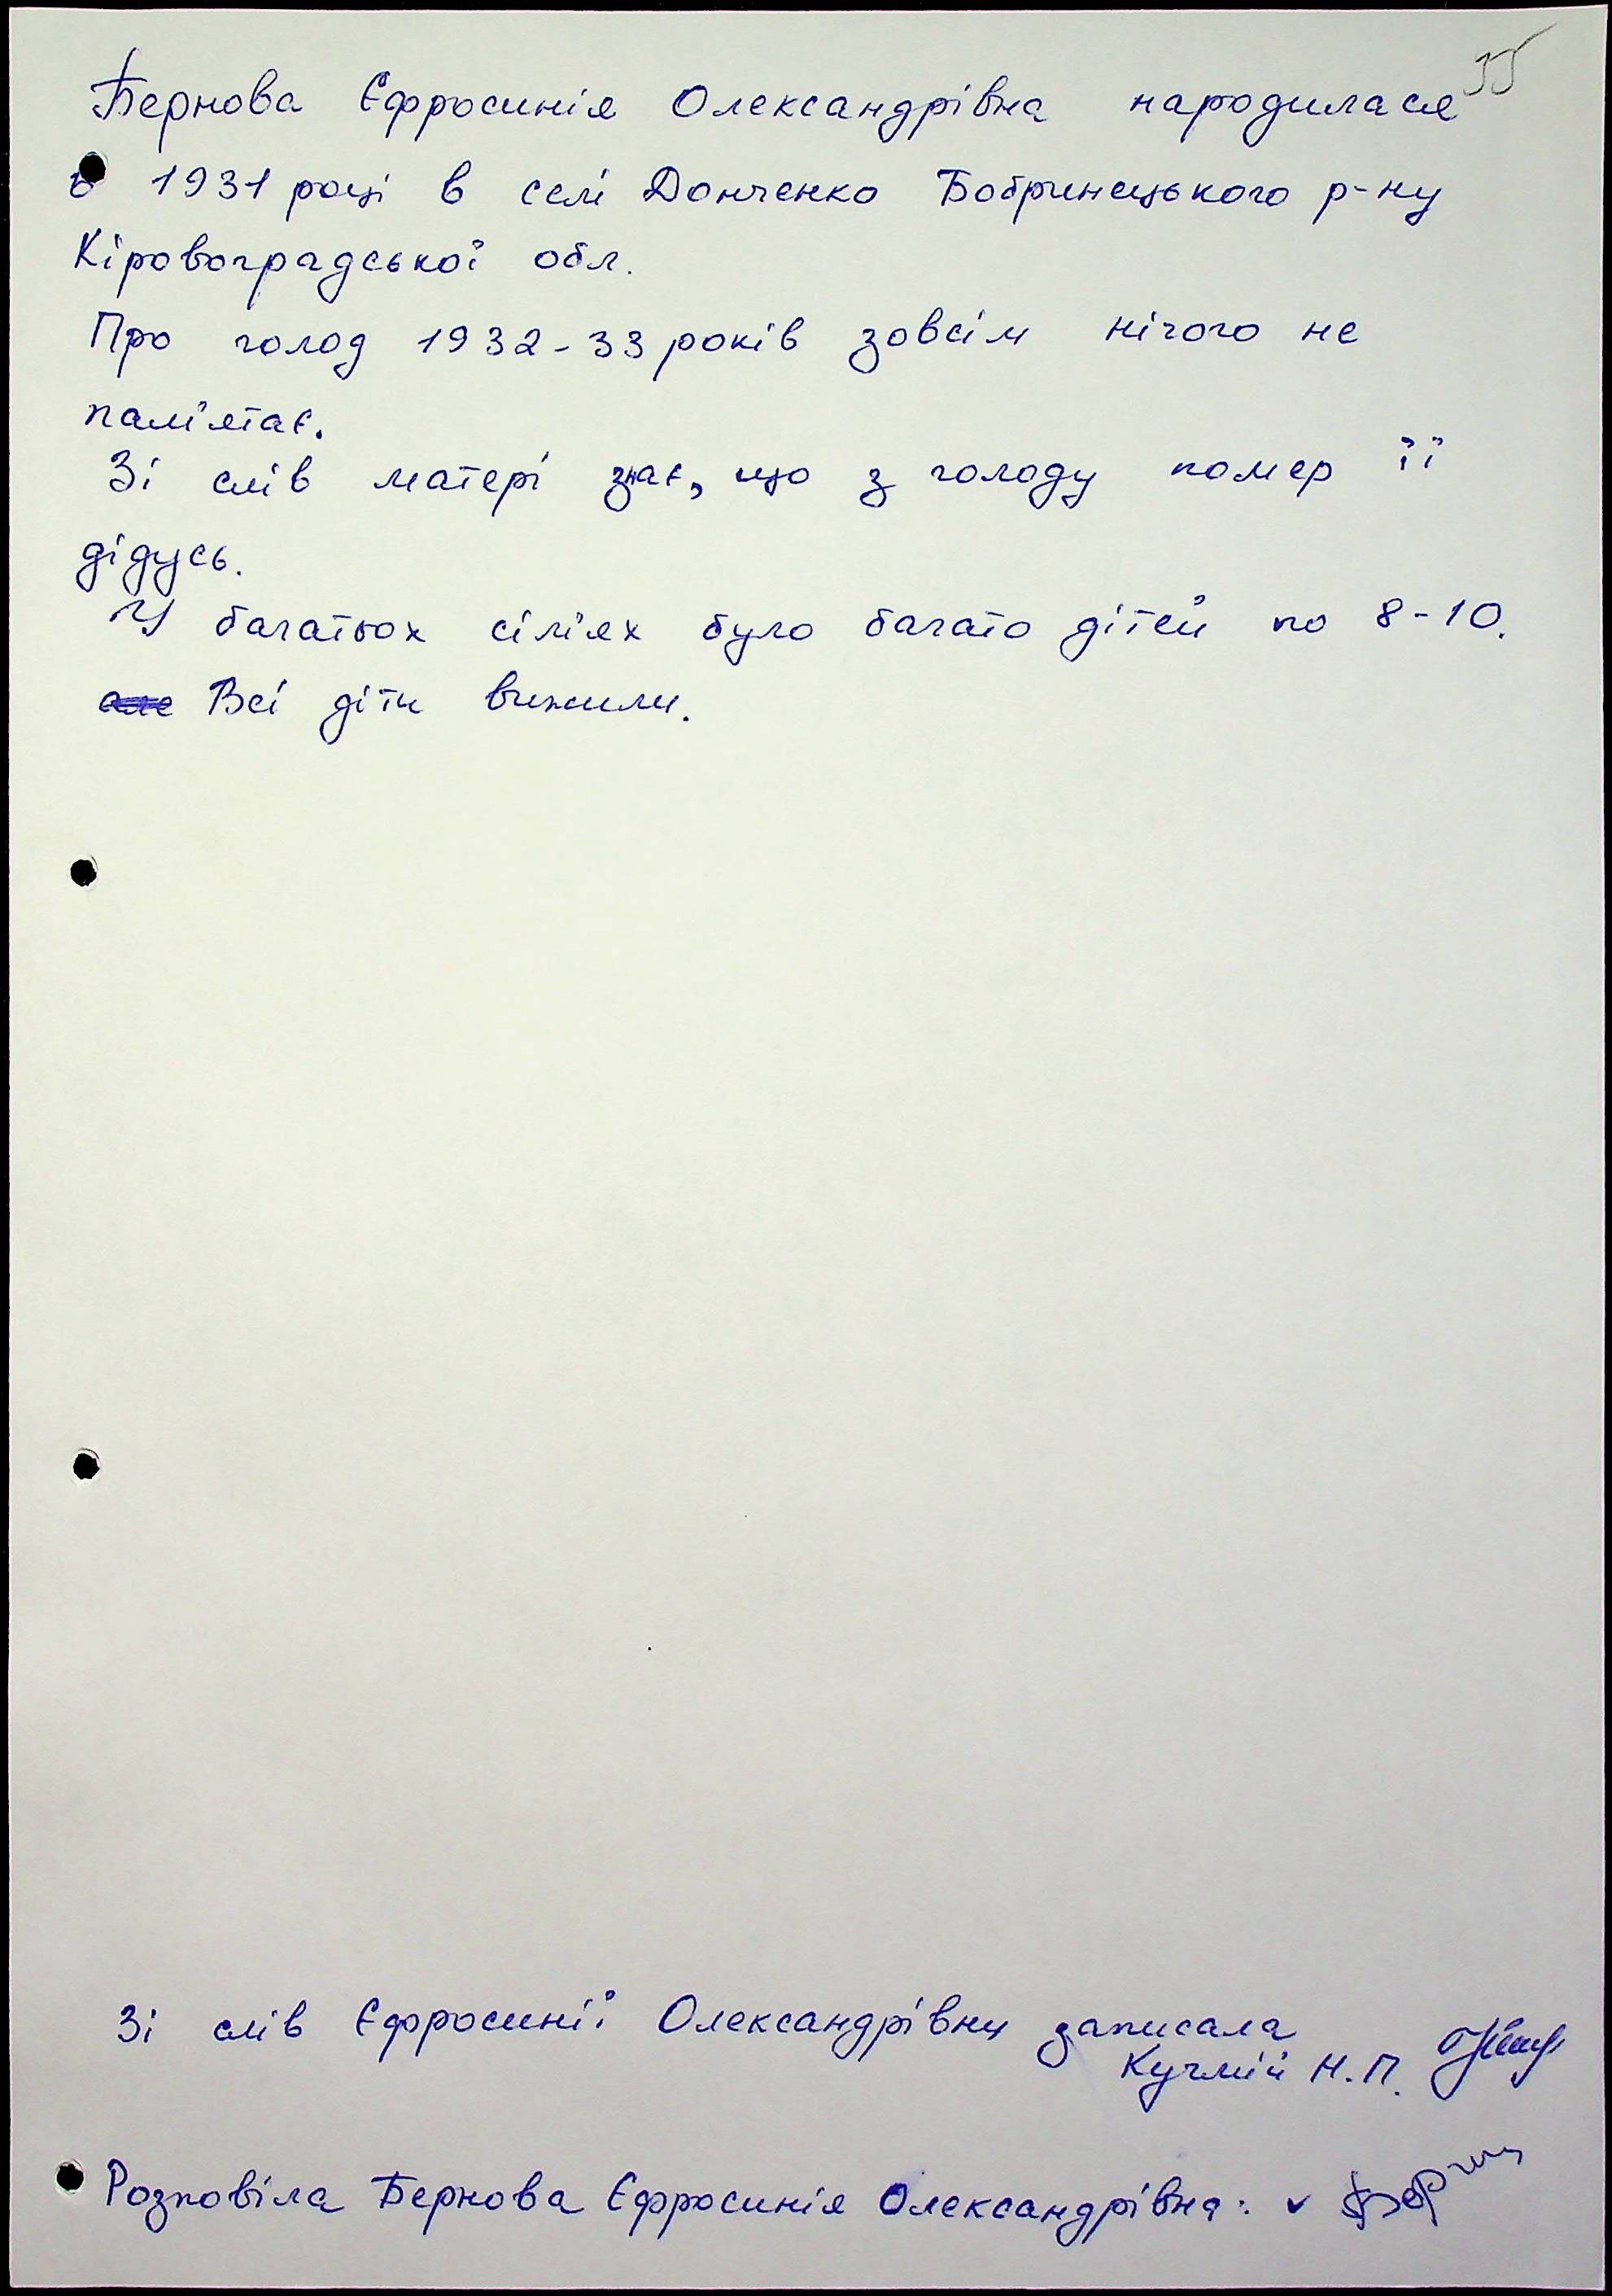 55
Бернова Єфросинія Олександрівна народилася
в 1931 році в селі Донченко Бобринецького р-ну
Кіровоградської обл.
Про голод 1932-33 років зовсім нічого не
пам'ятає.
Зі слів матері знає, що з голоду помер її
дідусь.
У багатьох сім'ях було багато дітей по 8-10.
але Всі діти вижили.
Зі слів Єфросинії Олександрівни записала
Кучмій Н.П.
Розповіла Бернова Єфросинія Олександрівна: v